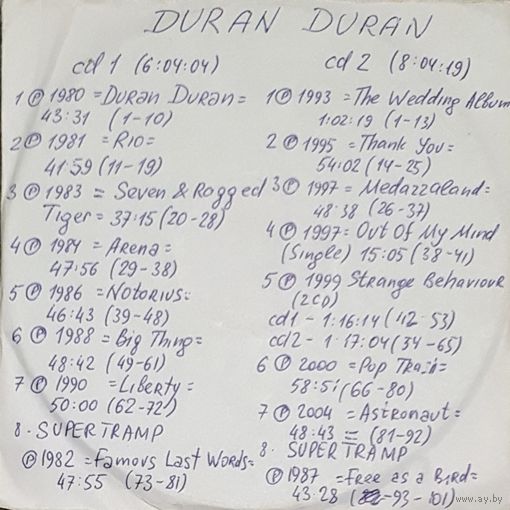 DURAN DURAN
cd 1 (6:04:04)
1 Ⓟ 1980 =DURAN DURAN=
43:31 (1-10)
2 Ⓟ 1981 =RIO=
41:59 (11-19)
3 Ⓟ 1983 = SEVEN & RAGGED
TIGER= 37:15 (20-28)
4 Ⓟ 1984 =ARENA=
47:56 (29-38)
5 Ⓟ 1986 =NOTORIUS=
46:43 (39-48)
6 Ⓟ 1988 =BIG THING=
48:42 (49-61)
7 Ⓟ 1990 =LIBERTY=
50:00 (62-72)
8. SUPERTRAMP
Ⓟ 1982 =FAMOUS LAST WORDS=
47:55 (73-81)
cd 2 (8:04:19)
1 Ⓟ 1993 =THE WEDDING ALBUM
1:02:19 (1-13)
2 Ⓟ 1995 =THANK YOU=
54:02 (14-25)
3 Ⓟ 1997 =MEDAZZALAND=
48:38 (26-37)
4 Ⓟ 1997= OUT OF MY MIND
(SINGLE) 15:05 (38-41)
5 Ⓟ 1999 STRANGE BEHAVIOUR
(2CD)
cd1 - 1:16:14 (42-53)
cd2 - 1:17:04 (34-65)
6 Ⓟ 2000 =POP TRASH=
58:51 (66-80)
7 Ⓟ 2004 =ASTRONAUT=
48:43 = (81-92)
8. SUPERTRAMP
Ⓟ 1987 =FREE AS A BIRD=
43:28 (-93-101)
www.ay.by